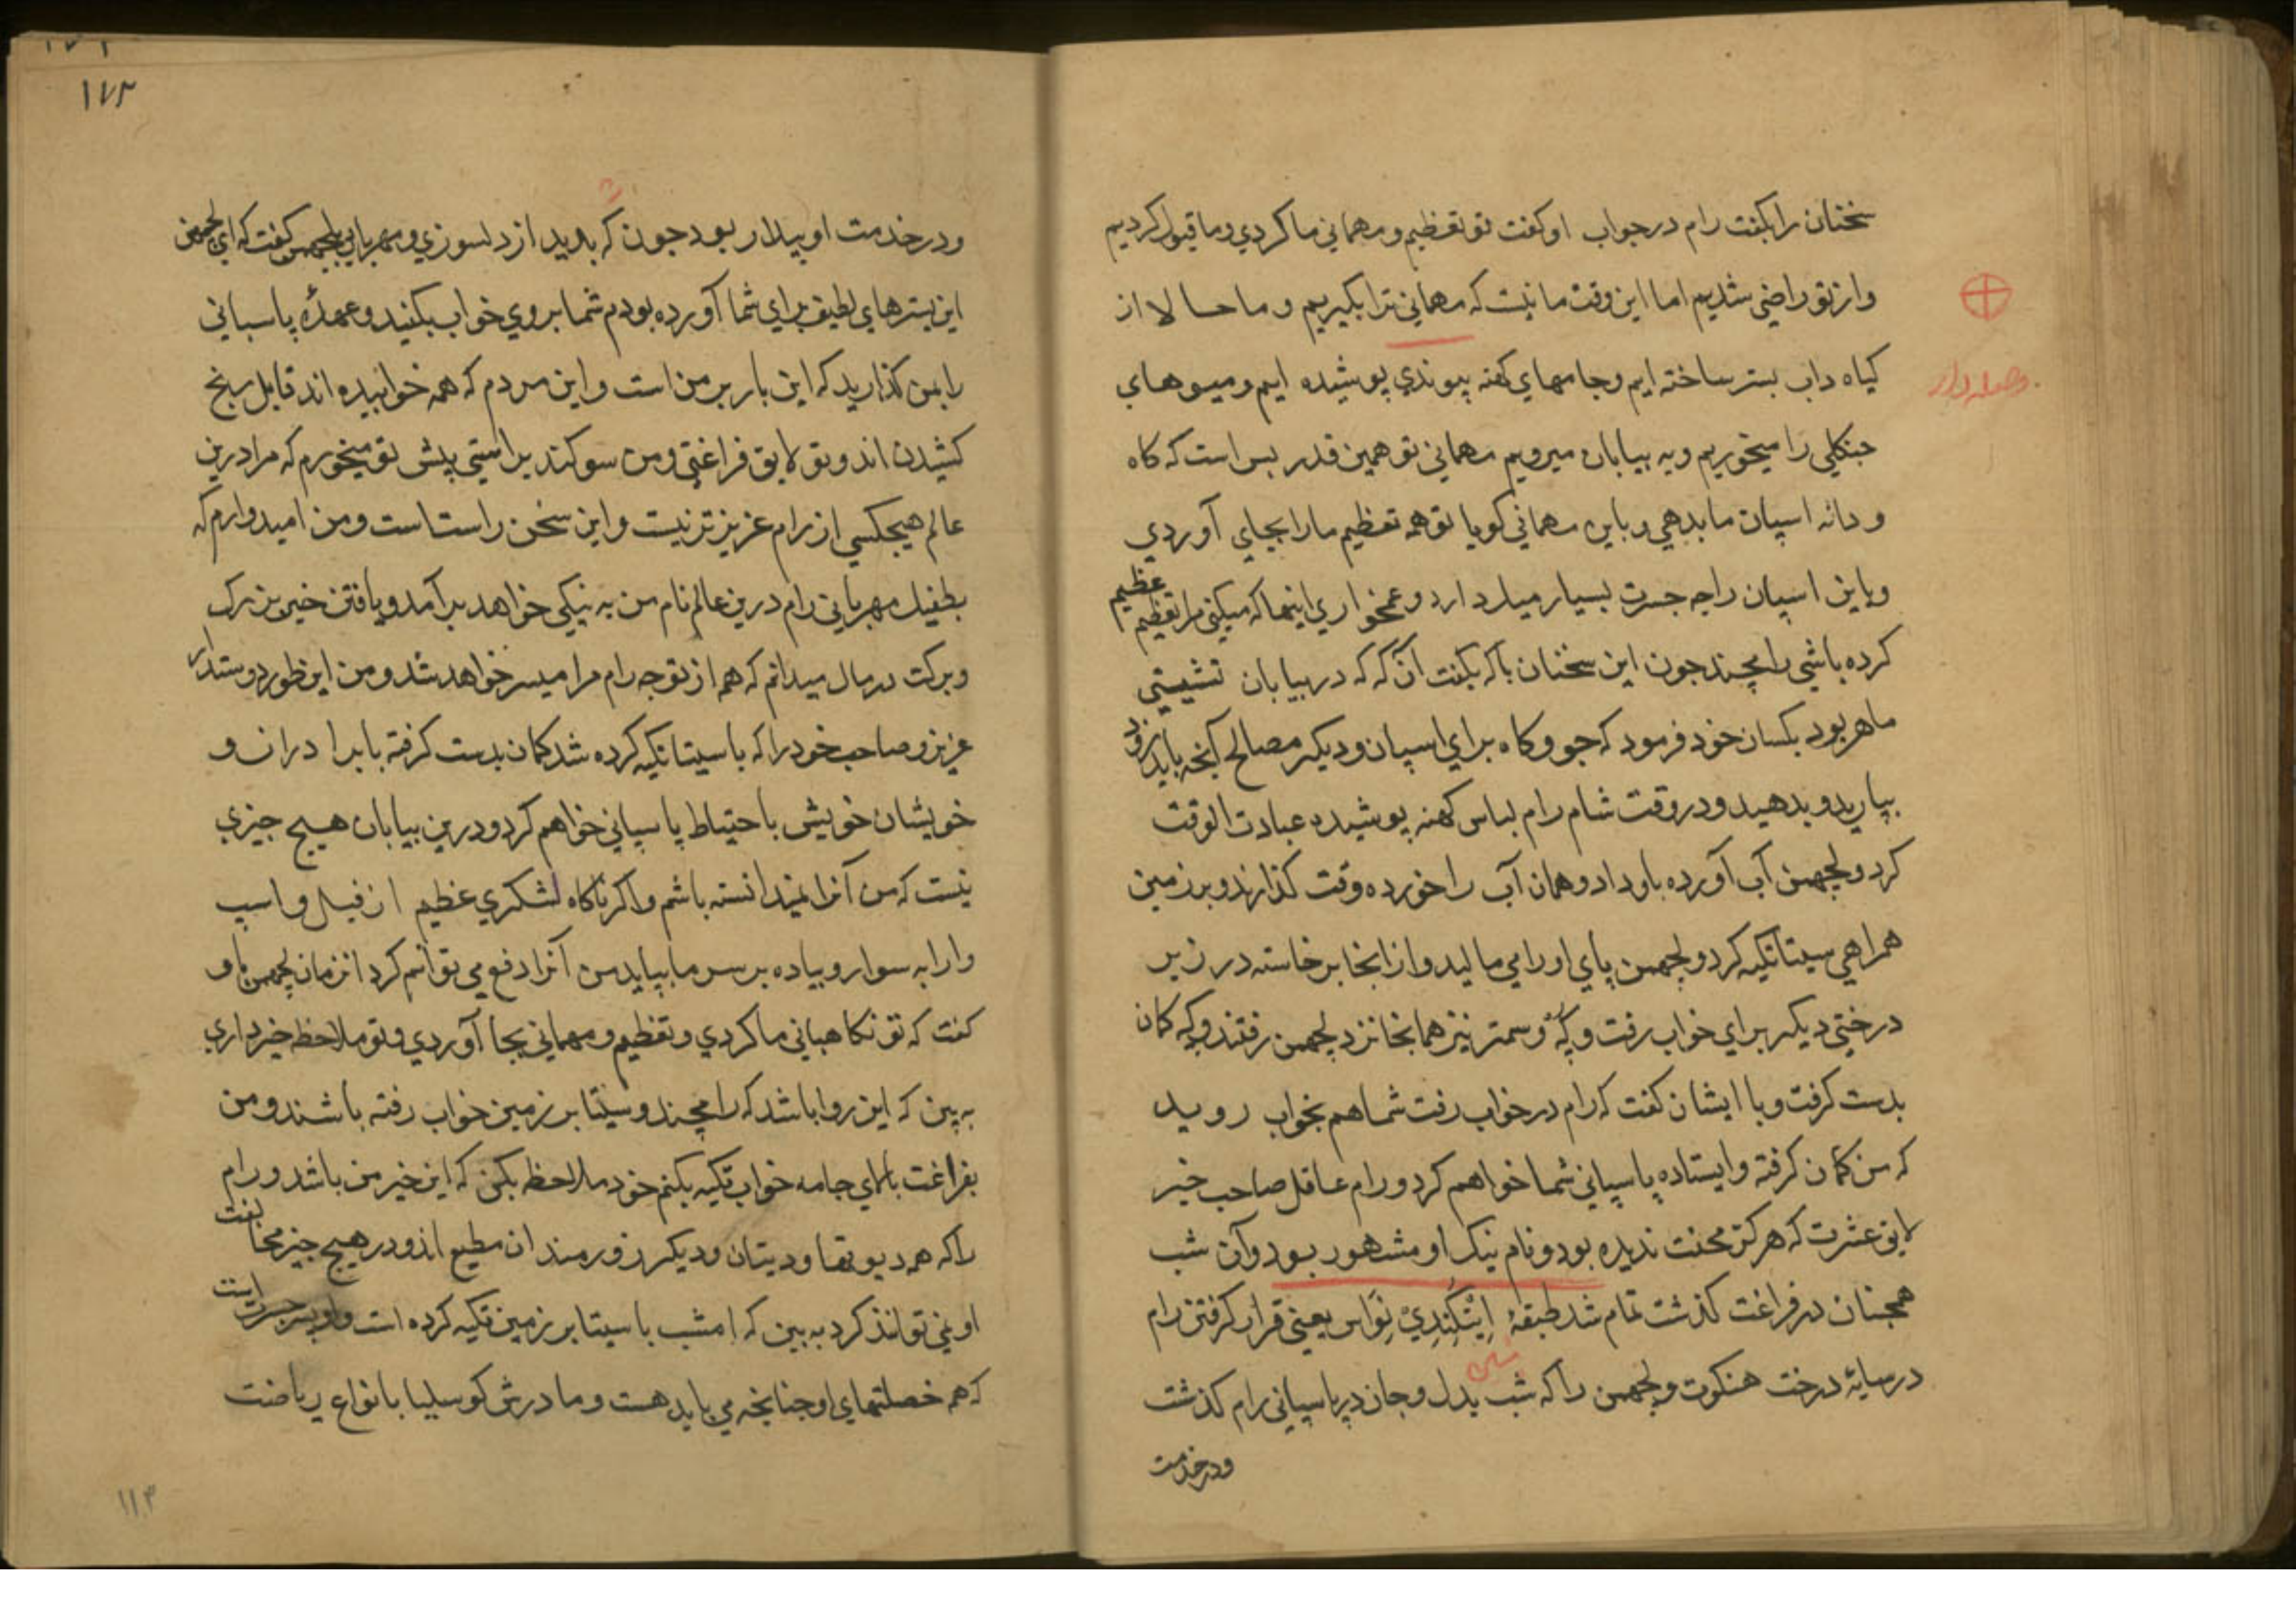 سخنان را بگفت رام در جواب او گفت تو تعظیم و مهمانی ما کردی و ما قبول کردیم
و از تو راضی شدیم اما این وقت ما نیست که مهمانی ترا بگیریم و ما حالا از
گیاه داب بستر ساخته ایم و جامهای کهنه پیوندی پوشیده ایم و میوهای
جنگلی را میخوریم و به بیابان میرویم مهمانی تو همین قدر بس است که کاه
و دانه اسپان ما بدهی و باین مهمانی گویا تو همه تعظیم ما را بجای آوردی
و باین اسپان راجه جسرت بسیار میل دارد و غمخواری اینها که میکنی مرا تعظیم عظیم
کرده باشی رامچند چون این سخنان باگه بگفت آن گه که در بیابان نشینی
ماهر بود بکسان خود فرمود که جو و کاه برای اسپان و دیگر مصالح آنچه باید زود
بیارید و بدهید و در وقت شام رام لباس کهنه پوشیده عبادت الوقت
کرد و لچهمن آب آورده باو داد و همان آب را خورده وقت گذارند و بر زمین
همراهی سیتا تکیه کرد و لچهمن پای او را می مالید و از انجا برخاسته در زیر
درختی دیگر برای خواب رفت و گه و سمتر نیز همانجا نزد لچهمن رفتند و گه کمان
بدست گرفت و با ایشان گفت که رام در خواب رفت شما هم بخواب روید
که من کمان گرفته و ایستاده پاسپانی شما خواهم کرد و رام عاقل صاحب خیر
لایق عشرت که هرگز محنت ندیده بود و نام نیک او مشهور بود و آن شب
همچنان در فراغت گذشت تمام شد طبقهٔ اِیَنْگُنْدِیْ نِوَاس یعنی قرار گرفتن رام
در سایهٔ درخت هنکوت و لچهمن را که شب بدل و جان در پاسپانی رام گذشت
و در خدمت
۱۷۳
و در خدمت او بیدار بود چون گه بدید از دلسوزی و مهربانی بلچهمن گفت که ای لچهمن
این بسترهای لطیف برای شما آورده بودم شما بروی خواب بکنید و عهدهٔ پاسبانی
را بمن گذارید که این بار بر من است و این مردم که همه خوابیده اند قابل رنج
کشیدن اند و تو لایق فراغتی و من سوگند براستی پیش تو میخورم که مرا درین
عالم هیچکسی از رام عزیزتر نیست و این سخن راست است و من امیدوارم که
بطفیل مهربانی رام درین عالم نام من به نیکی خواهد برآمد و یافتن خیر بزرگ
و برکت در مال میدانم که همه از توجه رام مرا میسر خواهد شد و من این طور دوستدار
عزیز و صاحب خود را که با سیتا تکیه کرده شد کمان بدست گرفته با برادران و
خویشان خویش باحتیاط پاسپانی خواهم کرد و درین بیابان هیچ چیزی
نیست که من آنرا نمیدانسته باشم و اگر ناگاه لشکری عظیم از فیل و اسپ
و ارابه سوار و پیاده بر سر ما بیاید من آنرا دفع می توانم کرد انزمان لچهمن باو
گفت که تو نگاهبانی ما کردی و تعظیم و مهمانی بجا آوردی و تو ملاحظه خیرداری
به بین که این روا باشد که رامچند و سیتا بر زمین خواب رفته باشند و من
بفراغت بالای جامه خواب تکیه بکنم خود ملاحظه بکن که این خیر من باشد و رام
را که همه دیوتها و دیتان و دیگر زورمندان مطیع اند و در هیچ چیز مخالفت
او نمی توانند کرد به بین که امشب با سیتا بر زمین تکیه کرده است و او پسر جسرت است
که همه خصلتهای او چنانچه می باید هست و مادرش کوسلیا با انواع ریاضت
۱۱۳